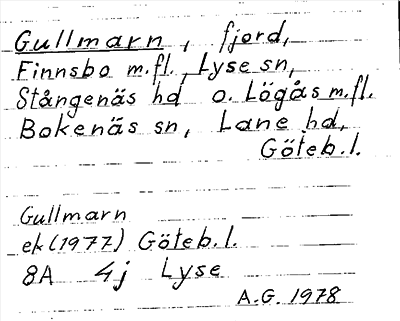 Gullmarn, fjord,
Finnsbo m.fl., Lyse sn,
Stångenäs hd o. Lögås m.fl.
Bokenäs sn, Lane hd,
Göteb.l.
Gullmarn
ek (1977) Göteb.l.
8A 4j Lyse
A.G. 1978